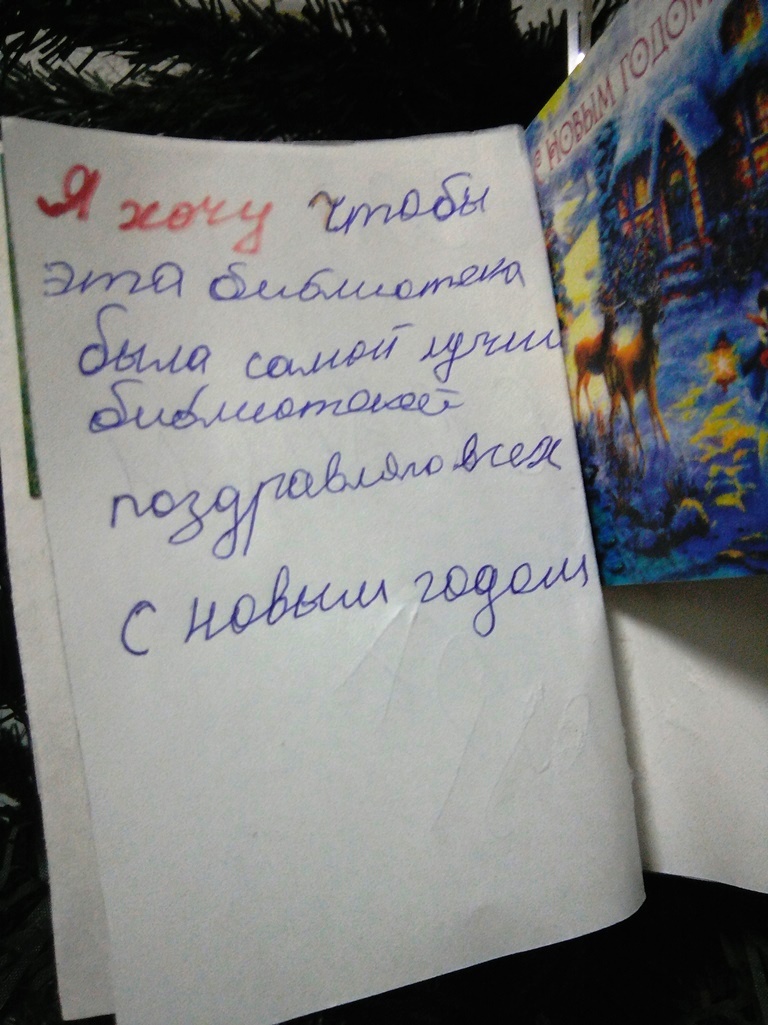 Я хочу чтобы
эта библиотека
была самой лучши
библиотекой
поздравляю всех
с новым годом
С НОВЫМ ГОДОМ